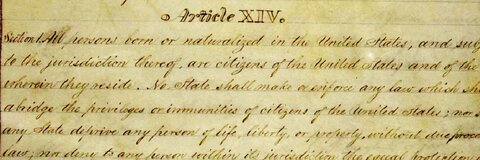 Article XIV.
Section 1. All persons born or naturalized in the United States, and
to the jurisdiction thereof, are citizens of the United States and of the
wherein they reside. No State shall make or enforce any law which
abridge the privileges or immunities of citizens of the United States; nor
any State deprive any person of life, liberty, or property, without due
law; nor deny to any person within its jurisdiction the equal